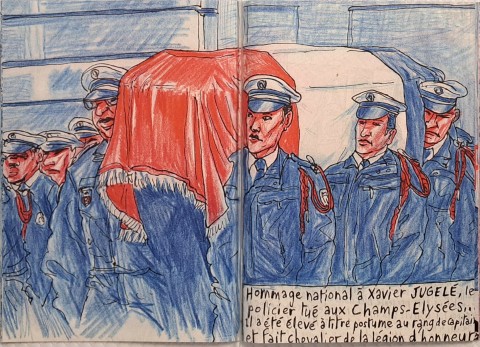 Hommage national à Xavier JUGELÉ, le
policier tué aux Champs-Elysées..
Il a été élevé à titre postume au rang de capitaine
et fait chevalier de la légion d'honneur